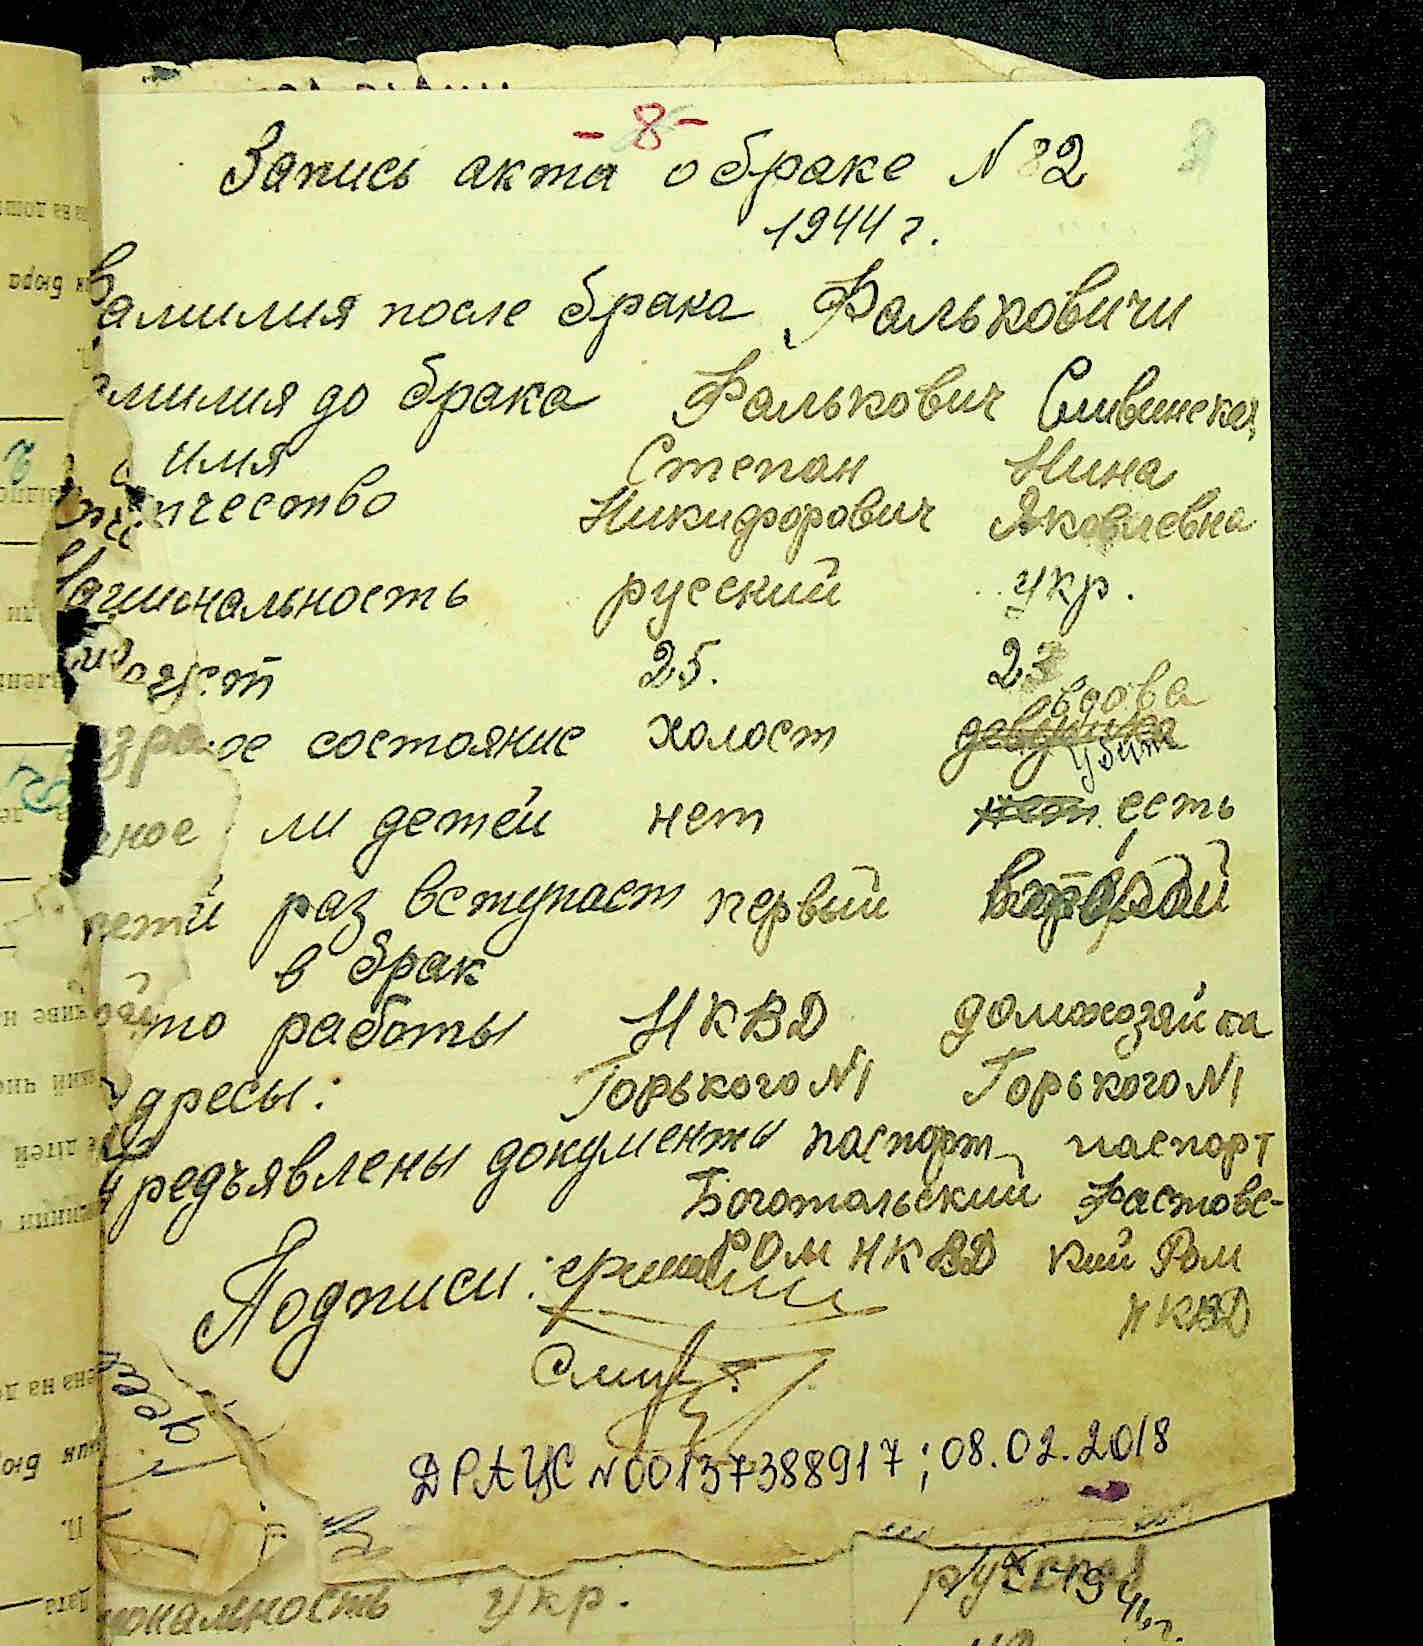 - 8 -
Запись акта о браке N 82
1944 г.
амилия после брака Фальковичи
милия до брака Фалькович Сливинская
имя Степан Нина
чество Никифорович Яковлевна
Национальность русский укр.
25. 23
вдова
ное состояние холост девушка
убит
ли детей нет нет есть
раз вступает первый второй
в брак
то работы НКВД домохозяйка
Адресы: Горького N1 Горького N1
Предъявлены документы паспорт паспорт
Боготольский Растовс-
РОМ НКВД кий Ром
НКВД
Подписи:
Слив
ДРАЦС N00137388917; 08.02.2018
ональность укр. русская